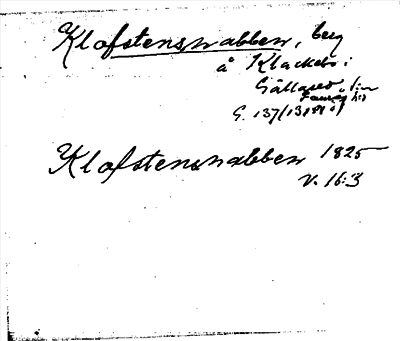 Klofstensnabben, berg
å Klackebo i
Gällared s:n
Faurås h:d
Klofstensnabben 1825
V. 16:3